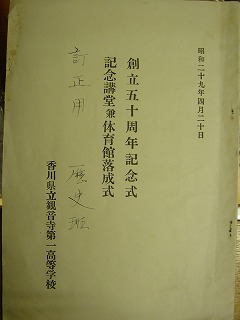 昭和二十九年四月二十日
創立五十周年記念式
記念講堂兼体育館落成式
訂正用 歴史班
香川県立観音寺第一高等学校